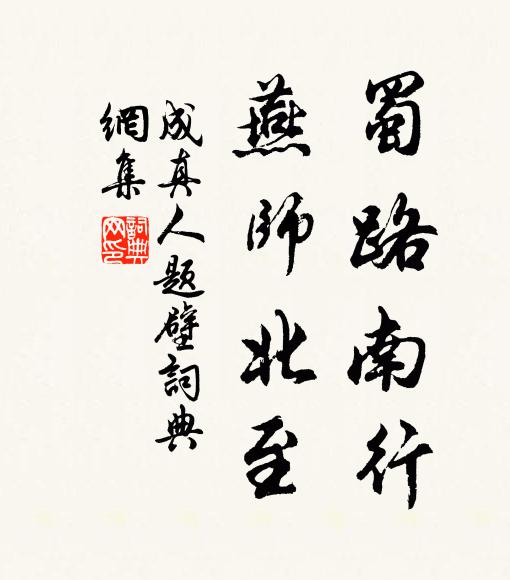 蜀路南行
燕師北至
成真人題壁詞典
網集
詞典
网印